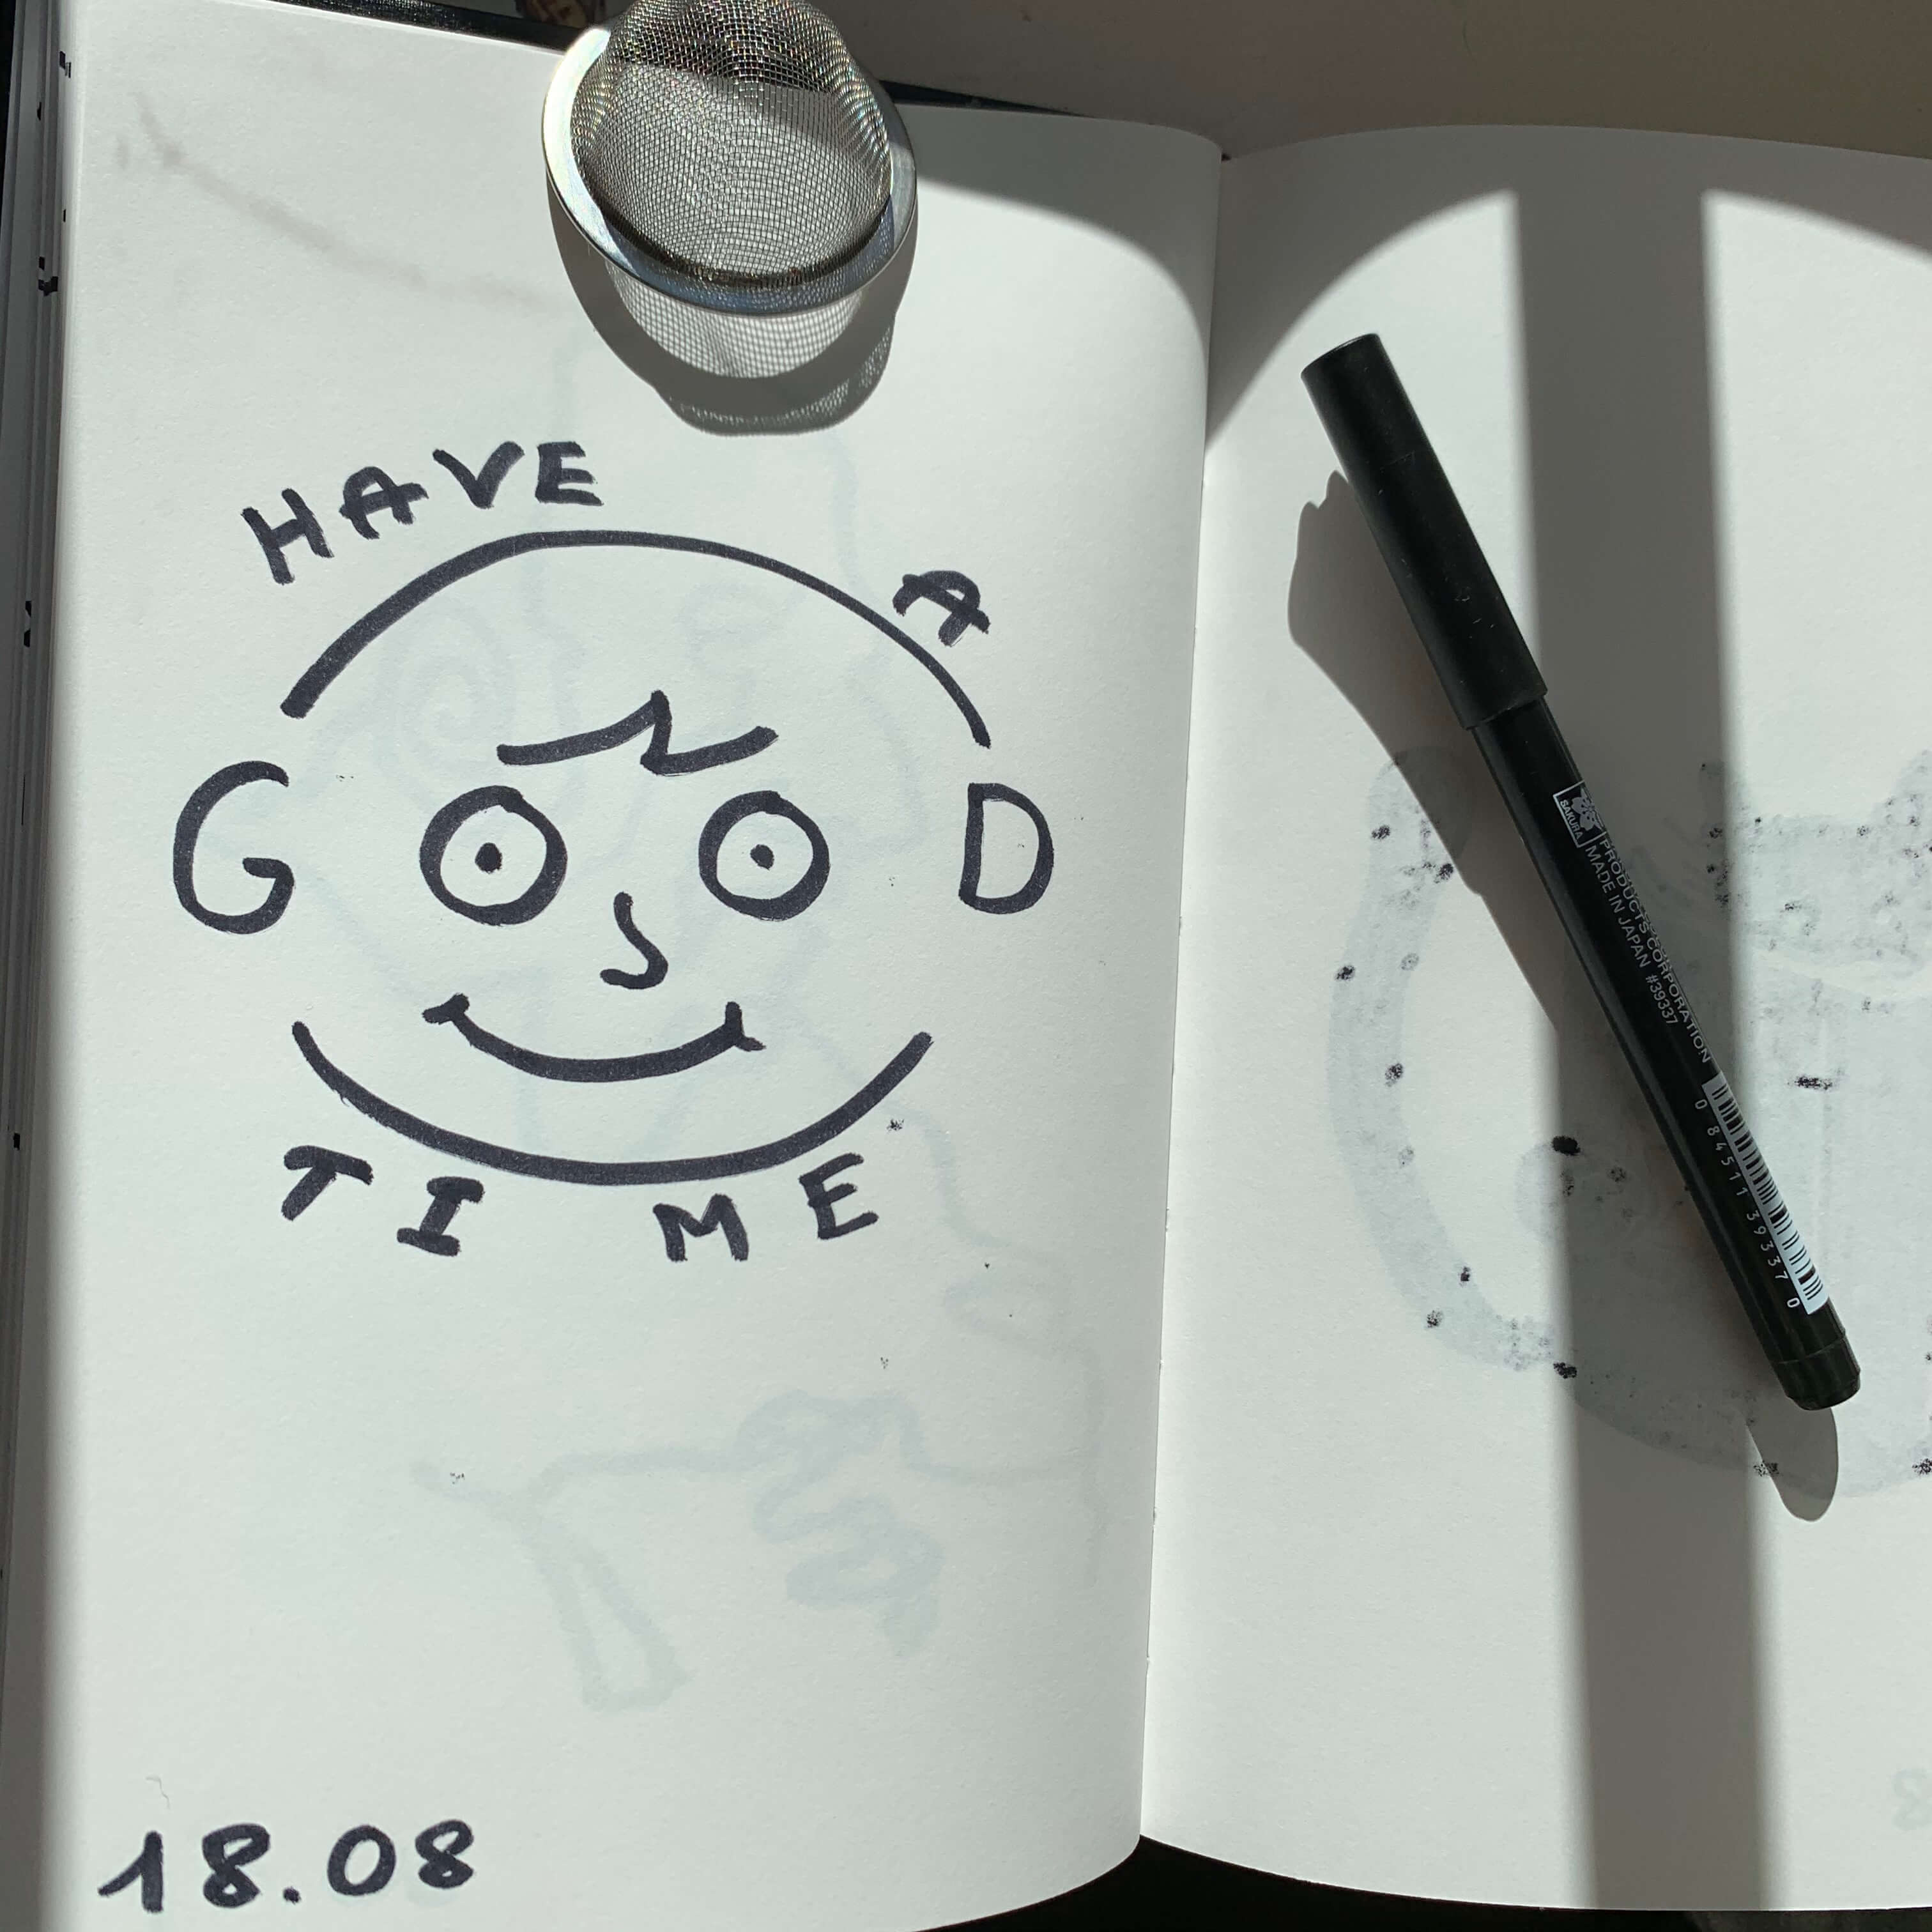 HAVE A
GOOD
TIME
18.08
SAKURA
PRODUCTS CORPORATION
MADE IN JAPAN #39337
0 84511 39337 0